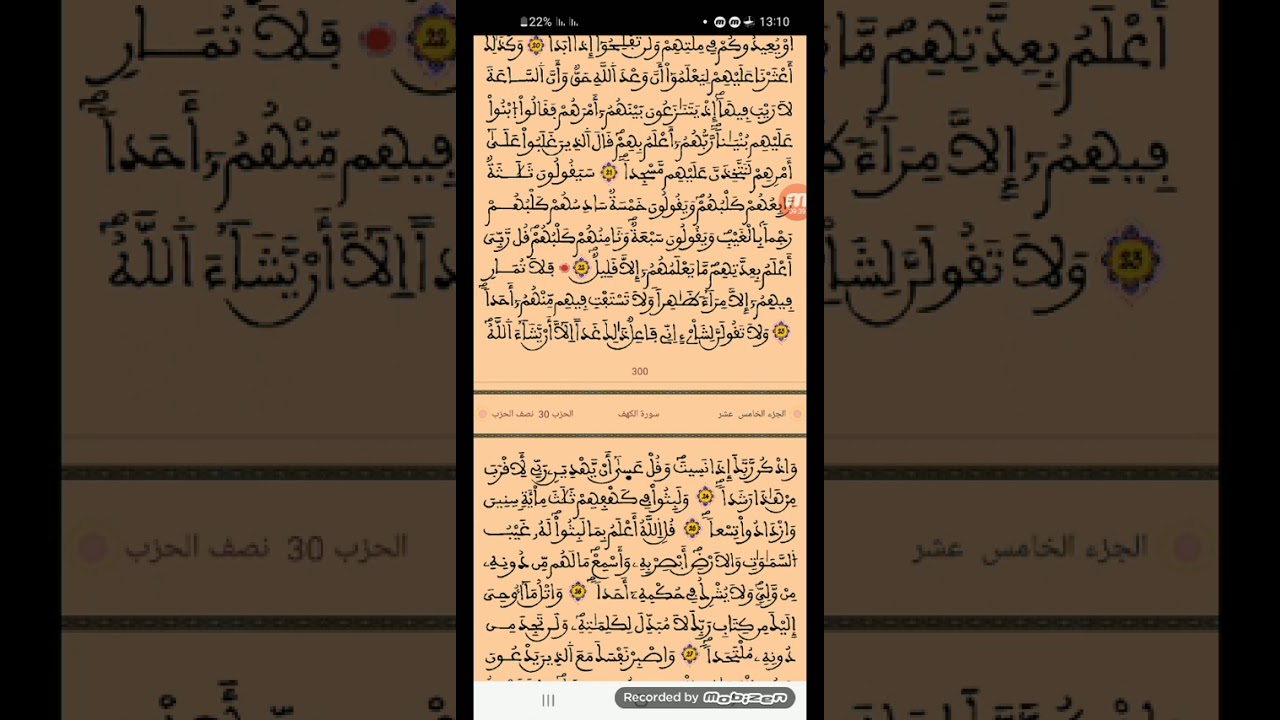 22%
13:10
أَوْ يُعِيدُوكُمْ فِي مِلَّتِهِمْ وَلَن تُفْلِحُوٓاْ إِذاً اَبَداٗ 20 وَكَذَٰلِكَ
أَعْثَرْنَا عَلَيْهِمْ لِيَعْلَمُوٓاْ أَنَّ وَعْدَ اَ۬للَّهِ حَقّٞ وَأَنَّ اَ۬لسَّاعَةَ
لَا رَيْبَ فِيهَآ إِذْ يَتَنَٰزَعُونَ بَيْنَهُمُۥٓ أَمْرَهُمْ فَقَالُواْ اُ۪بْنُواْ
عَلَيْهِم بُنْيَٰناٗ رَّبُّهُمُۥٓ أَعْلَمُ بِهِمْ قَالَ اَ۬لذِينَ غَلَبُواْ عَلَىٰٓ
أَمْرِهِمْ لَنَتَّخِذَنَّ عَلَيْهِم مَّسْجِداٗ 21 سَيَقُولُونَ ثَلَٰثَةٞ
رَّابِعُهُمْ كَلْبُهُمْ وَيَقُولُونَ خَمْسَةٞ سَادِسُهُمْ كَلْبُهُمْ
رَجْماَۢ بِالْغَيْبِ وَيَقُولُونَ سَبْعَةٞ وَثَامِنُهُمْ كَلْبُهُمْ قُل رَّبِّيَ
أَعْلَمُ بِعِدَّتِهِم مَّا يَعْلَمُهُمُۥٓ إِلَّا قَلِيلٞ 22 فَلَا تُمَارِ
فِيهِمُۥٓ إِلَّا مِرَآءٗ ظَٰهِراٗ وَلَا تَسْتَفْتِ فِيهِم مِّنْهُمُۥٓ أَحَداٗ
23 وَلَا تَقُولَنَّ لِشَاْےْءٍ إِنِّي فَاعِلٞ ذَٰلِكَ غَداً اِلَّآ أَنْ يَّشَآءَ اَ۬للَّهُ
300
الجزء الخامس عشر
سورة الكهف
الحزب 30 نصف الحزب
وَاذْكُر رَّبَّكَ إِذَا نَسِيتَ وَقُلْ عَس۪ىٰٓ أَنْ يَّهْدِيَنِۦ رَبِّي لِأَقْرَبَ
مِنْ هَٰذَا رَشَداٗ 24 وَلَبِثُواْ فِي كَهْفِهِمْ ثَلَٰثَ مِاْئَةٖ سِنِينَ
وَازْدَادُواْ تِسْعاٗ 25 قُلِ اِ۬للَّهُ أَعْلَمُ بِمَا لَبِثُواْ لَهُۥ غَيْبُ
اُ۬لسَّمَٰوَٰتِ وَالَارْضِ أَبْصِرْ بِهِۦ وَأَسْمِعْ مَا لَهُم مِّن دُونِهِۦ
مِنْ وَّلِيّٖ وَلَا يُشْرِكُ فِي حُكْمِهِۦٓ أَحَداٗ 26 وَاتْلُ مَآ أُوحِيَ
إِلَيْكَ مِن كِتَابِ رَبِّكَ لَا مُبَدِّلَ لِكَلِمَٰتِهِۦ وَلَن تَجِدَ مِن
دُونِهِۦ مُلْتَحَداٗ 27 وَاصْبِرْ نَفْسَكَ مَعَ اَ۬لذِينَ يَدْعُونَ
Recorded by mobizen